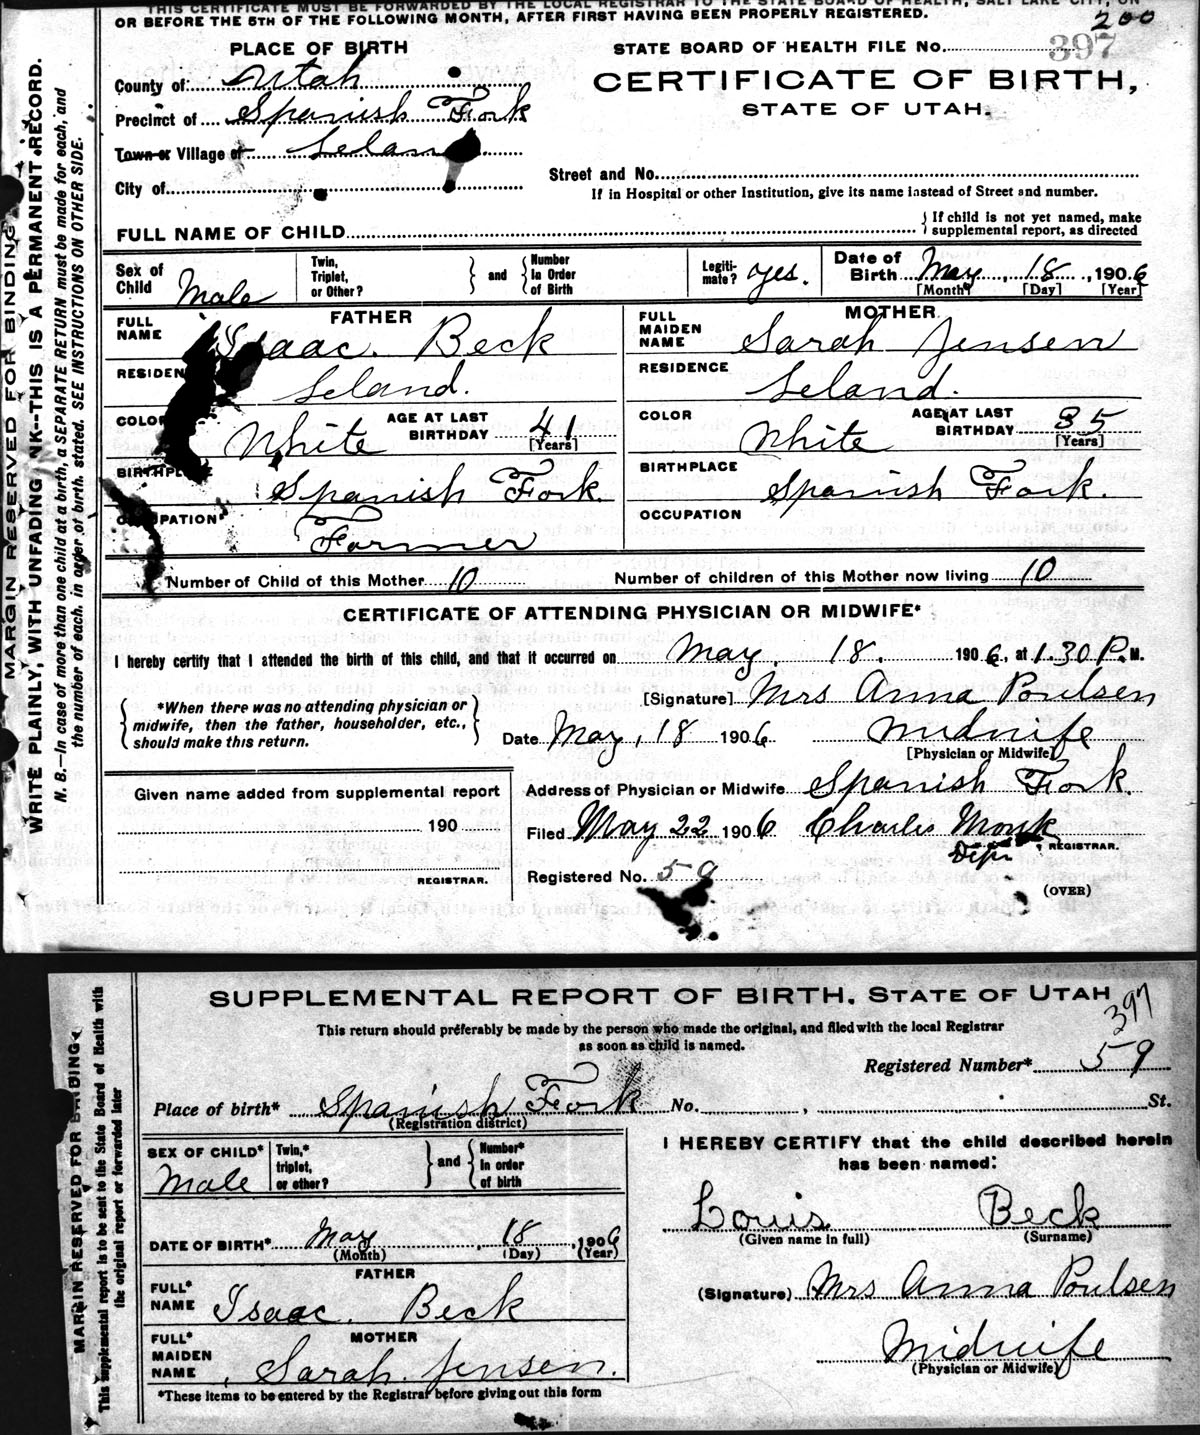 THIS CERTIFICATE MUST BE FORWARDED BY THE LOCAL REGISTRAR TO THE STATE BOARD OF HEALTH, SALT LAKE CITY, ON
OR BEFORE THE 5TH OF THE FOLLOWING MONTH, AFTER FIRST HAVING BEEN PROPERLY REGISTERED.
200
PLACE OF BIRTH
STATE BOARD OF HEALTH FILE No. 397
County of Utah
CERTIFICATE OF BIRTH,
Precinct of Spanish Fork
STATE OF UTAH.
Town or Village of Leland
City of
Street and No.
If in Hospital or other Institution, give its name instead of Street and number.
FULL NAME OF CHILD
If child is not yet named, make
supplemental report, as directed
Sex of Child Male
Twin, Triplet, or Other?
and
Number in Order of Birth
Legiti-mate? yes.
Date of Birth May 18, 1906
[Month] [Day] [Year]
FATHER
FULL NAME Isaac. Beck
MOTHER
FULL MAIDEN NAME Sarah Jensen
RESIDEN Leland.
RESIDENCE Leland.
COLO White
AGE AT LAST BIRTHDAY 41
[Years]
COLOR White
AGE AT LAST BIRTHDAY 35
[Years]
BIRTHPL Spanish Fork.
BIRTHPLACE Spanish Fork.
OCCUPATION Farmer
OCCUPATION
Number of Child of this Mother 10
Number of children of this Mother now living 10
CERTIFICATE OF ATTENDING PHYSICIAN OR MIDWIFE*
I hereby certify that I attended the birth of this child, and that it occurred on May. 18. 1906, at 1.30 P.M.
*When there was no attending physician or
midwife, then the father, householder, etc.,
should make this return.
[Signature] Mrs Anna Poulsen,
Date May, 18 1906 Midwife
[Physician or Midwife]
Given name added from supplemental report
190
REGISTRAR.
Address of Physician or Midwife Spanish Fork.
Filed May 22 1906 Charles Monk
Depu , REGISTRAR.
Registered No. 59
(OVER)
MARGIN RESERVED FOR BINDING
WRITE PLAINLY, WITH UNFADING INK--THIS IS A PERMANENT RECORD.
N. B.—In case of more than one child at a birth, a SEPARATE RETURN must be made for each, and
the number of each, in order of birth, stated. SEE INSTRUCTIONS ON OTHER SIDE.
SUPPLEMENTAL REPORT OF BIRTH. STATE OF UTAH
397
This return should preferably be made by the person who made the original, and filed with the local Registrar
as soon as child is named.
Registered Number* 59
Place of birth* Spanish Fork No. , St.
(Registration district)
SEX OF CHILD* Male
Twin,* triplet, or other?
and
Number* in order of birth
DATE OF BIRTH* May , 18 , 1906
(Month) (Day) (Year)
FATHER
FULL* NAME Isaac. Beck
MOTHER
FULL* MAIDEN NAME Sarah. Jensen.
*These items to be entered by the Registrar before giving out this form
I HEREBY CERTIFY that the child described herein
has been named:
Louis Beck
(Given name in full) (Surname)
(Signature) Mrs Anna Poulsen
Midwife
(Physician or Midwife)
MARGIN RESERVED FOR BINDING
This supplemental report is to be sent to the State Board of Health with
the original report or forwarded later